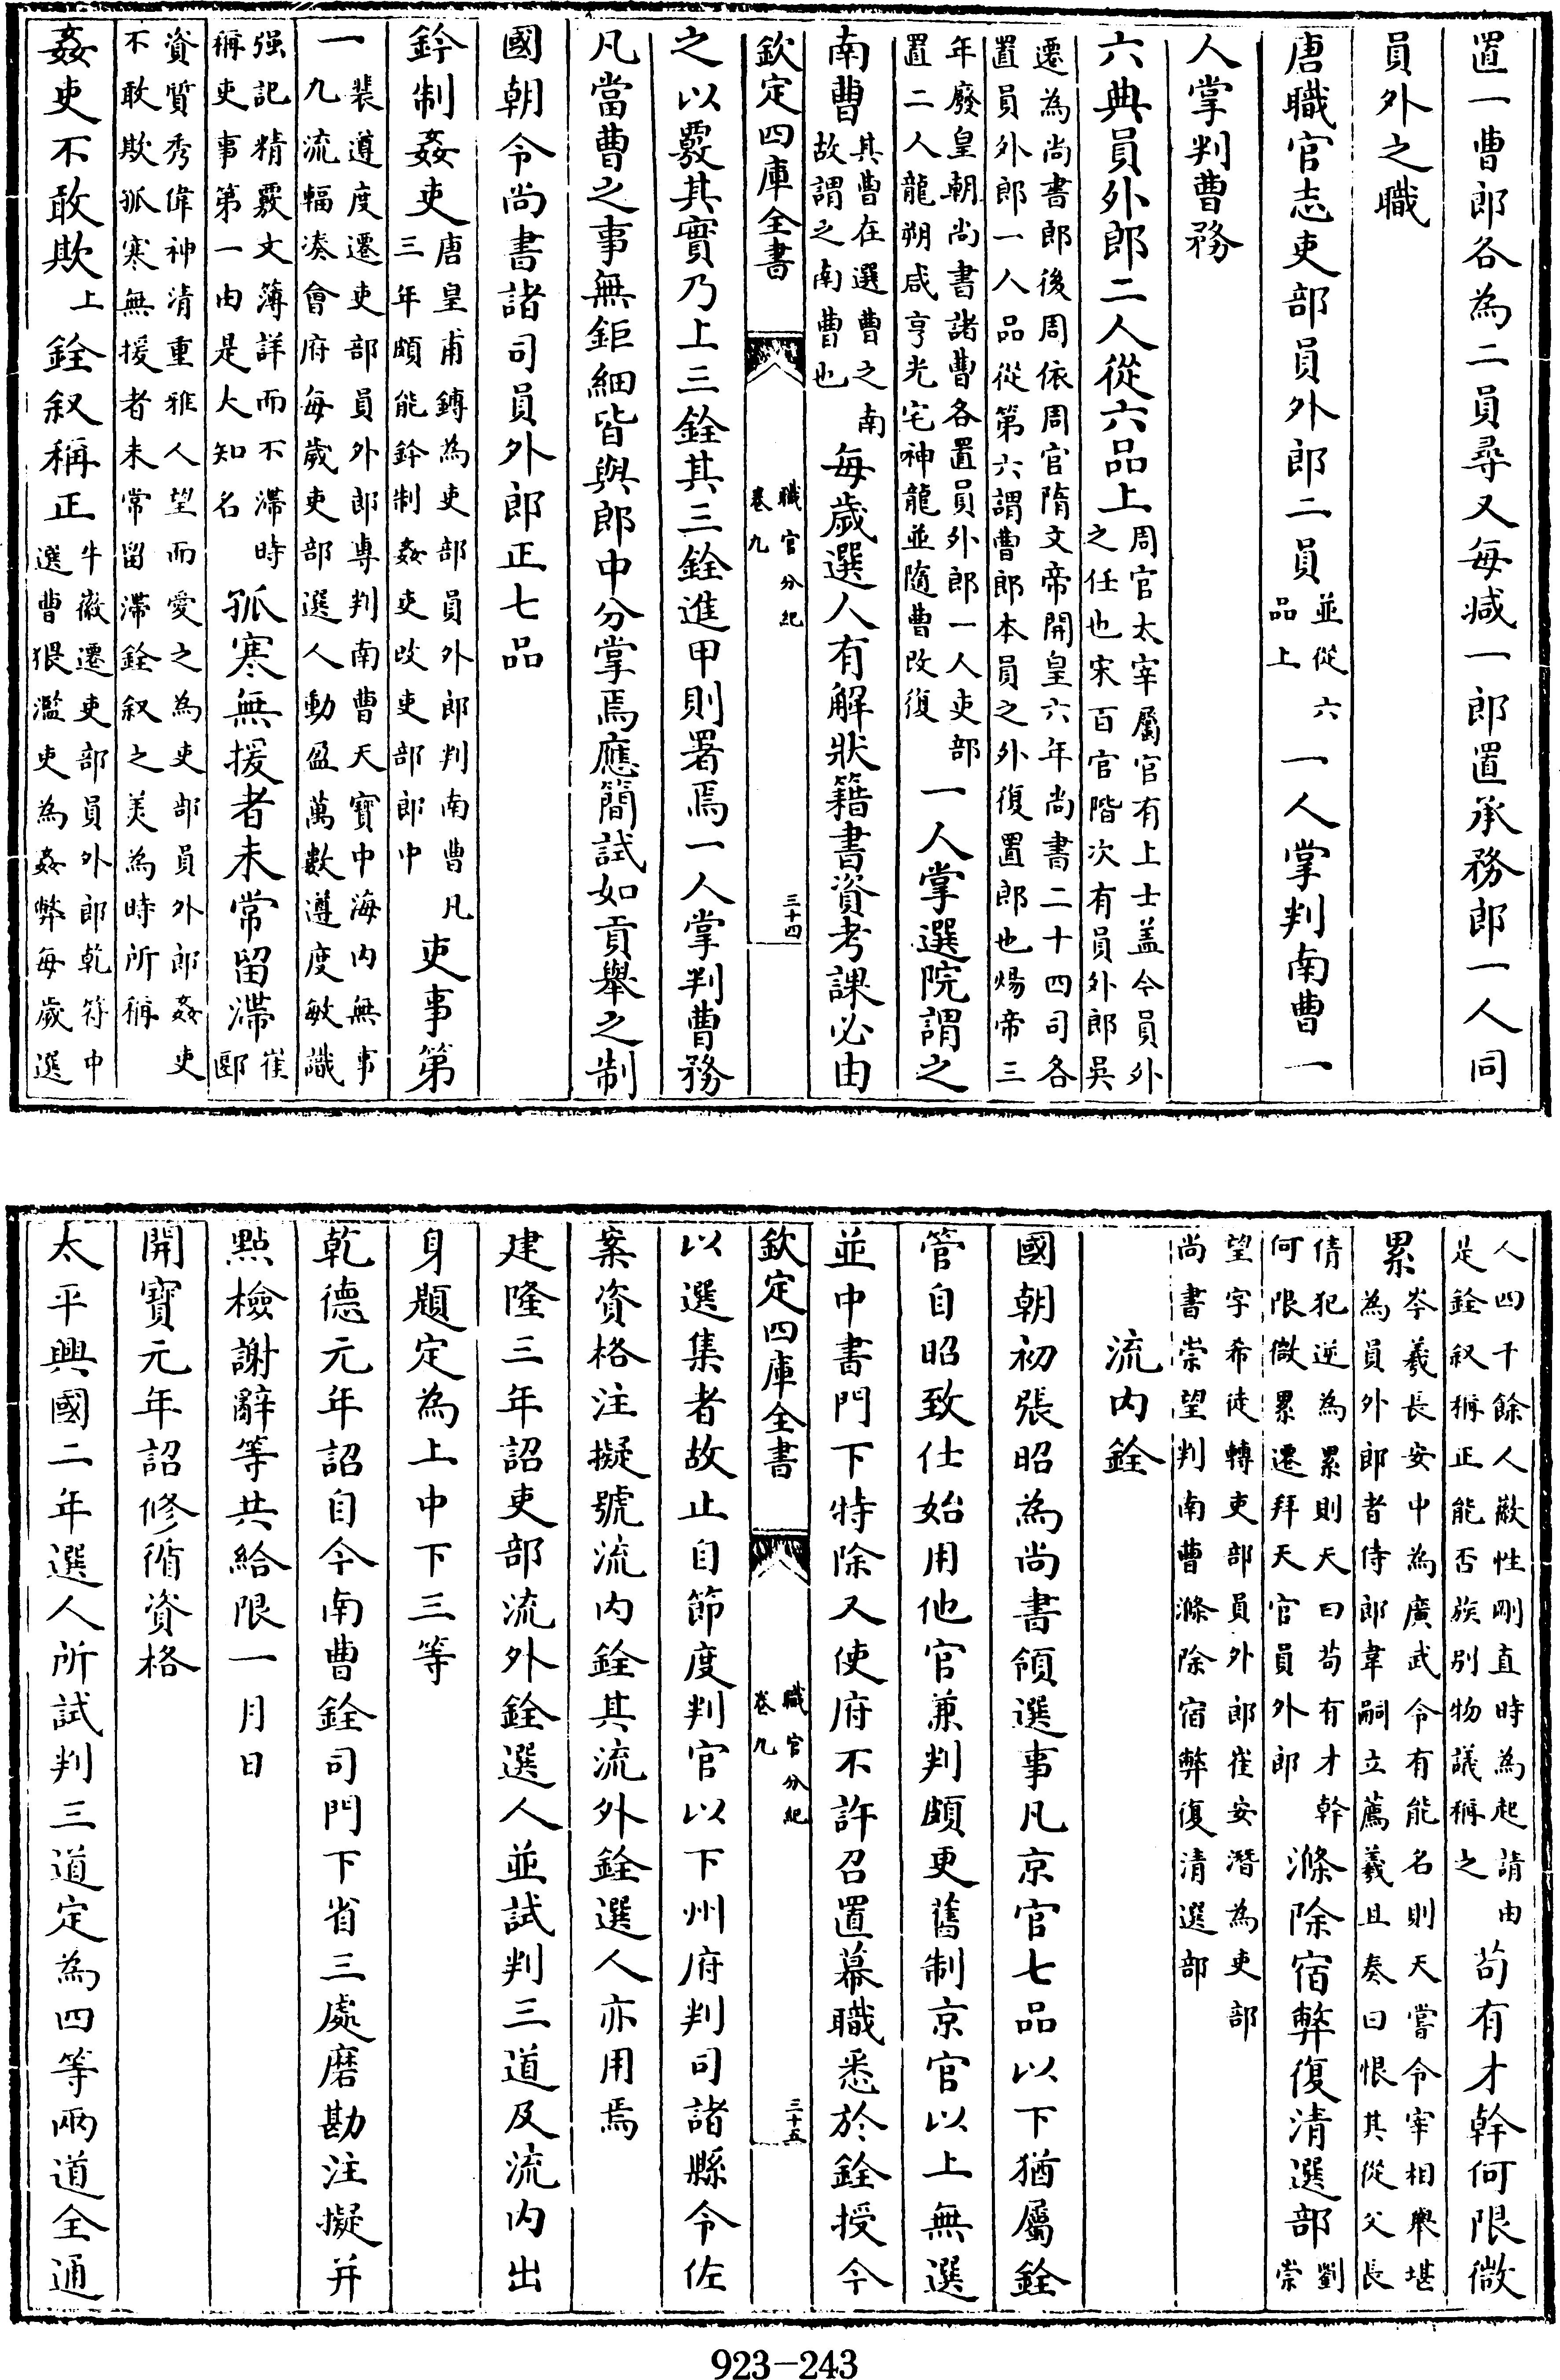 置一曹郎各為二員尋又每減一郎置承務郎一人同
員外之職
唐職官志吏部員外郎二員並從六品上一人掌判南曹一
人掌判曹務
六典員外郎二人從六品上周官太宰屬官有上士盖今員外之任也宋百官階次有員外郎吳
遷為尚書郎後周依周官隋文帝開皇六年尚書二十四司各置員外郎一人品從第六謂曹郎本員之外復置郎也煬帝三
年廢皇朝尚書諸曹各置員外郎一人吏部置二人龍朔咸亨光宅神龍並隨曹改復一人掌選院謂之
南曹其曹在選曹之南故謂之南曹也每歲選人有解狀籍書資考課必由
欽定四庫全書 職官分紀 卷九 三十四
之以覈其實乃上三銓其三銓進甲則署焉一人掌判曹務
凡當曹之事無鉅細皆與郎中分掌焉應簡試如貢舉之制
國朝令尚書諸司員外郎正七品
鈐制姦吏唐皇甫鎛為吏部員外郎判南曹凡三年頗能鈐制姦吏改吏部郎中吏事第
一裴遵度遷吏部員外郎專判南曹天寶中海内無事九流輻湊會府每歲吏部選人動盈萬數遵度敏識
强記精覈文簿詳而不滯時稱吏事第一由是大知名孤寒無援者未常留滯崔郾
資質秀偉神清重雅人望而愛之為吏部員外郎姦吏不敢欺孤寒無援者未常留滯銓叙之美為時所稱
姦吏不敢欺上銓叙稱正牛徽遷吏部員外郎乾符中選曹猥濫吏為姦弊每歲選
人四千餘人徽性剛直時為起請由是銓叙稱正能否族别物議稱之苟有才幹何限微
累岑羲長安中為廣武令有能名則天嘗令宰相舉堪為員外郎者侍郎韋嗣立薦羲且奏曰恨其從父長
倩犯逆為累則天曰苟有才幹何限微累遷拜天官員外郎滌除宿弊復清選部劉崇
望字希徒轉吏部員外郎崔安潛為吏部尚書崇望判南曹滌除宿弊復清選部
流内銓
國朝初張昭為尚書領選事凡京官七品以下猶屬銓
管自昭致仕始用他官兼判頗更舊制京官以上無選
並中書門下特除又使府不許召置幕職悉於銓授今
欽定四庫全書 職官分紀 卷九 三十五
以選集者故止自節度判官以下州府判司諸縣令佐
案資格注擬號流内銓其流外銓選人亦用焉
建隆三年詔吏部流外銓選人並試判三道及流内出
身題定為上中下三等
乾德元年詔自今南曹銓司門下省三處磨勘注擬并
點檢謝辭等共給限一月日
開寶元年詔修循資格
太平興國二年選人所試判三道定為四等兩道全通
923—243